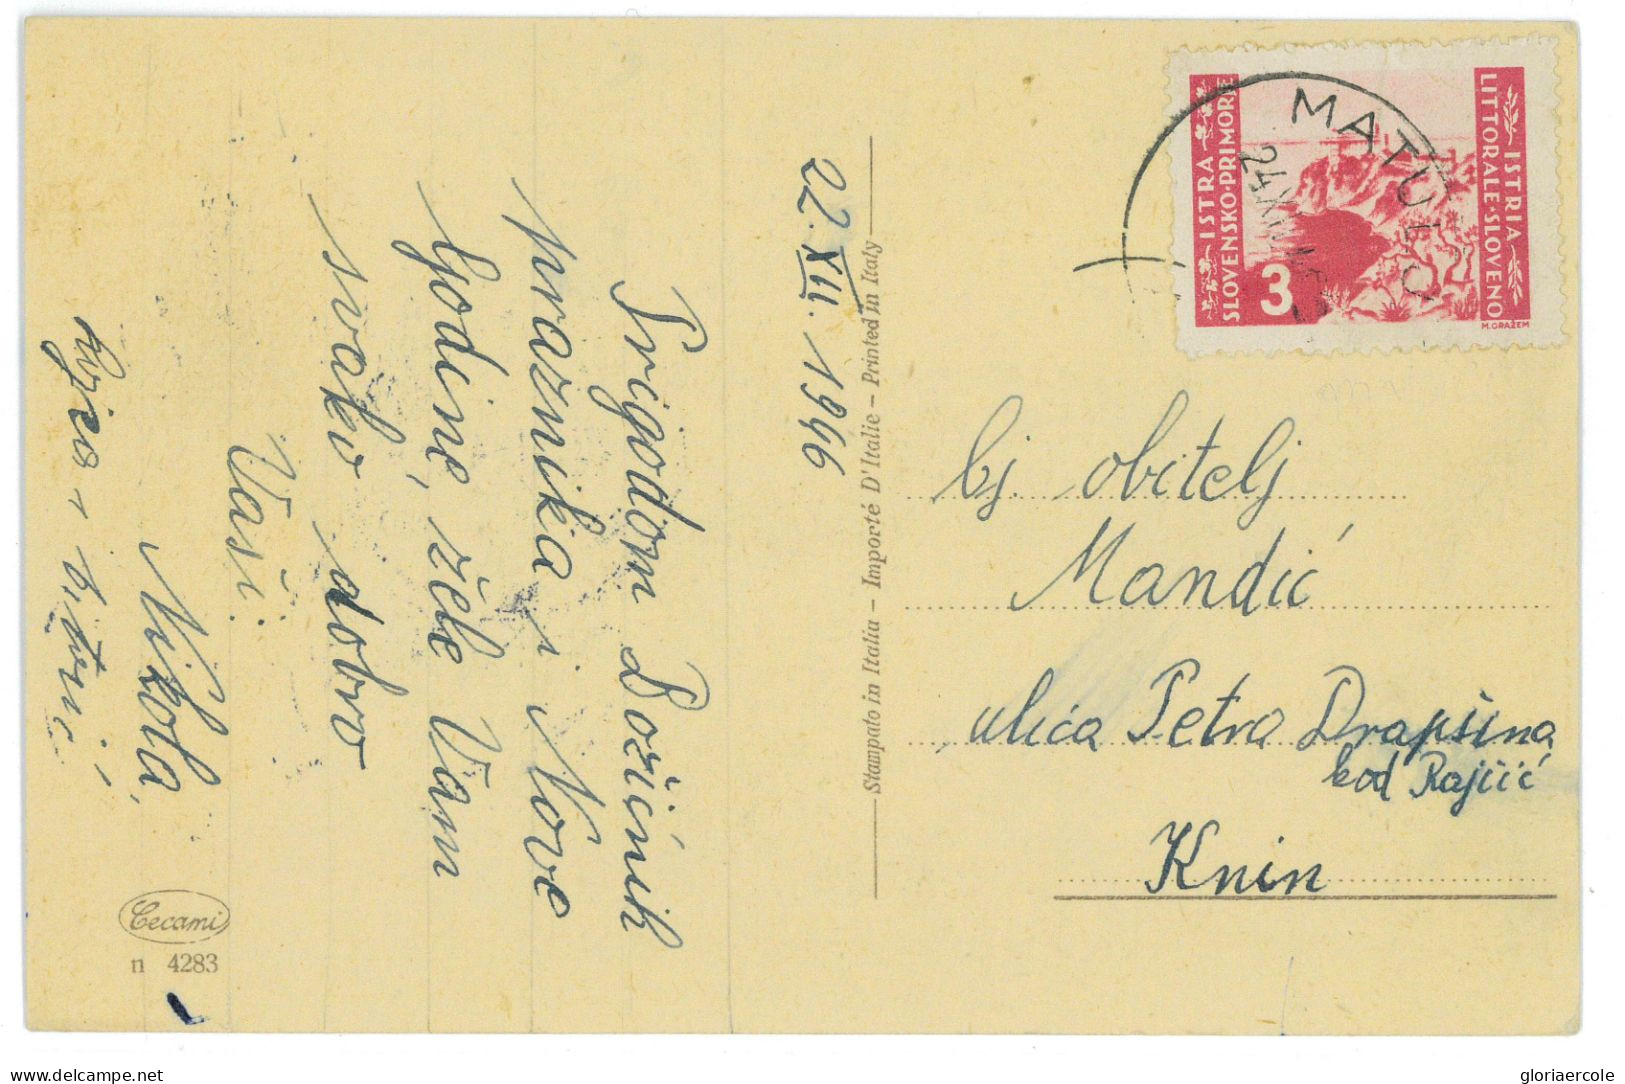 22.XII. 1946
Prigodom Božićnih
praznika i Nove
Godine, žele Vam
svako dobro
Vaši:
Nikola,
Cecami
n 4283
Stampato in Italia – Importé D'Italie – Printed in Italy
ISTRA
SLOVENSKO·PRIMORJE
3
ISTRIA
LITTORALE·SLOVENO
M.GRAŽEM
MATULJ
24 XII
obitelj
Mandić
ulica Petra Drapšina
kod Rajčić
Knin
delcampe.net
gloriaercole